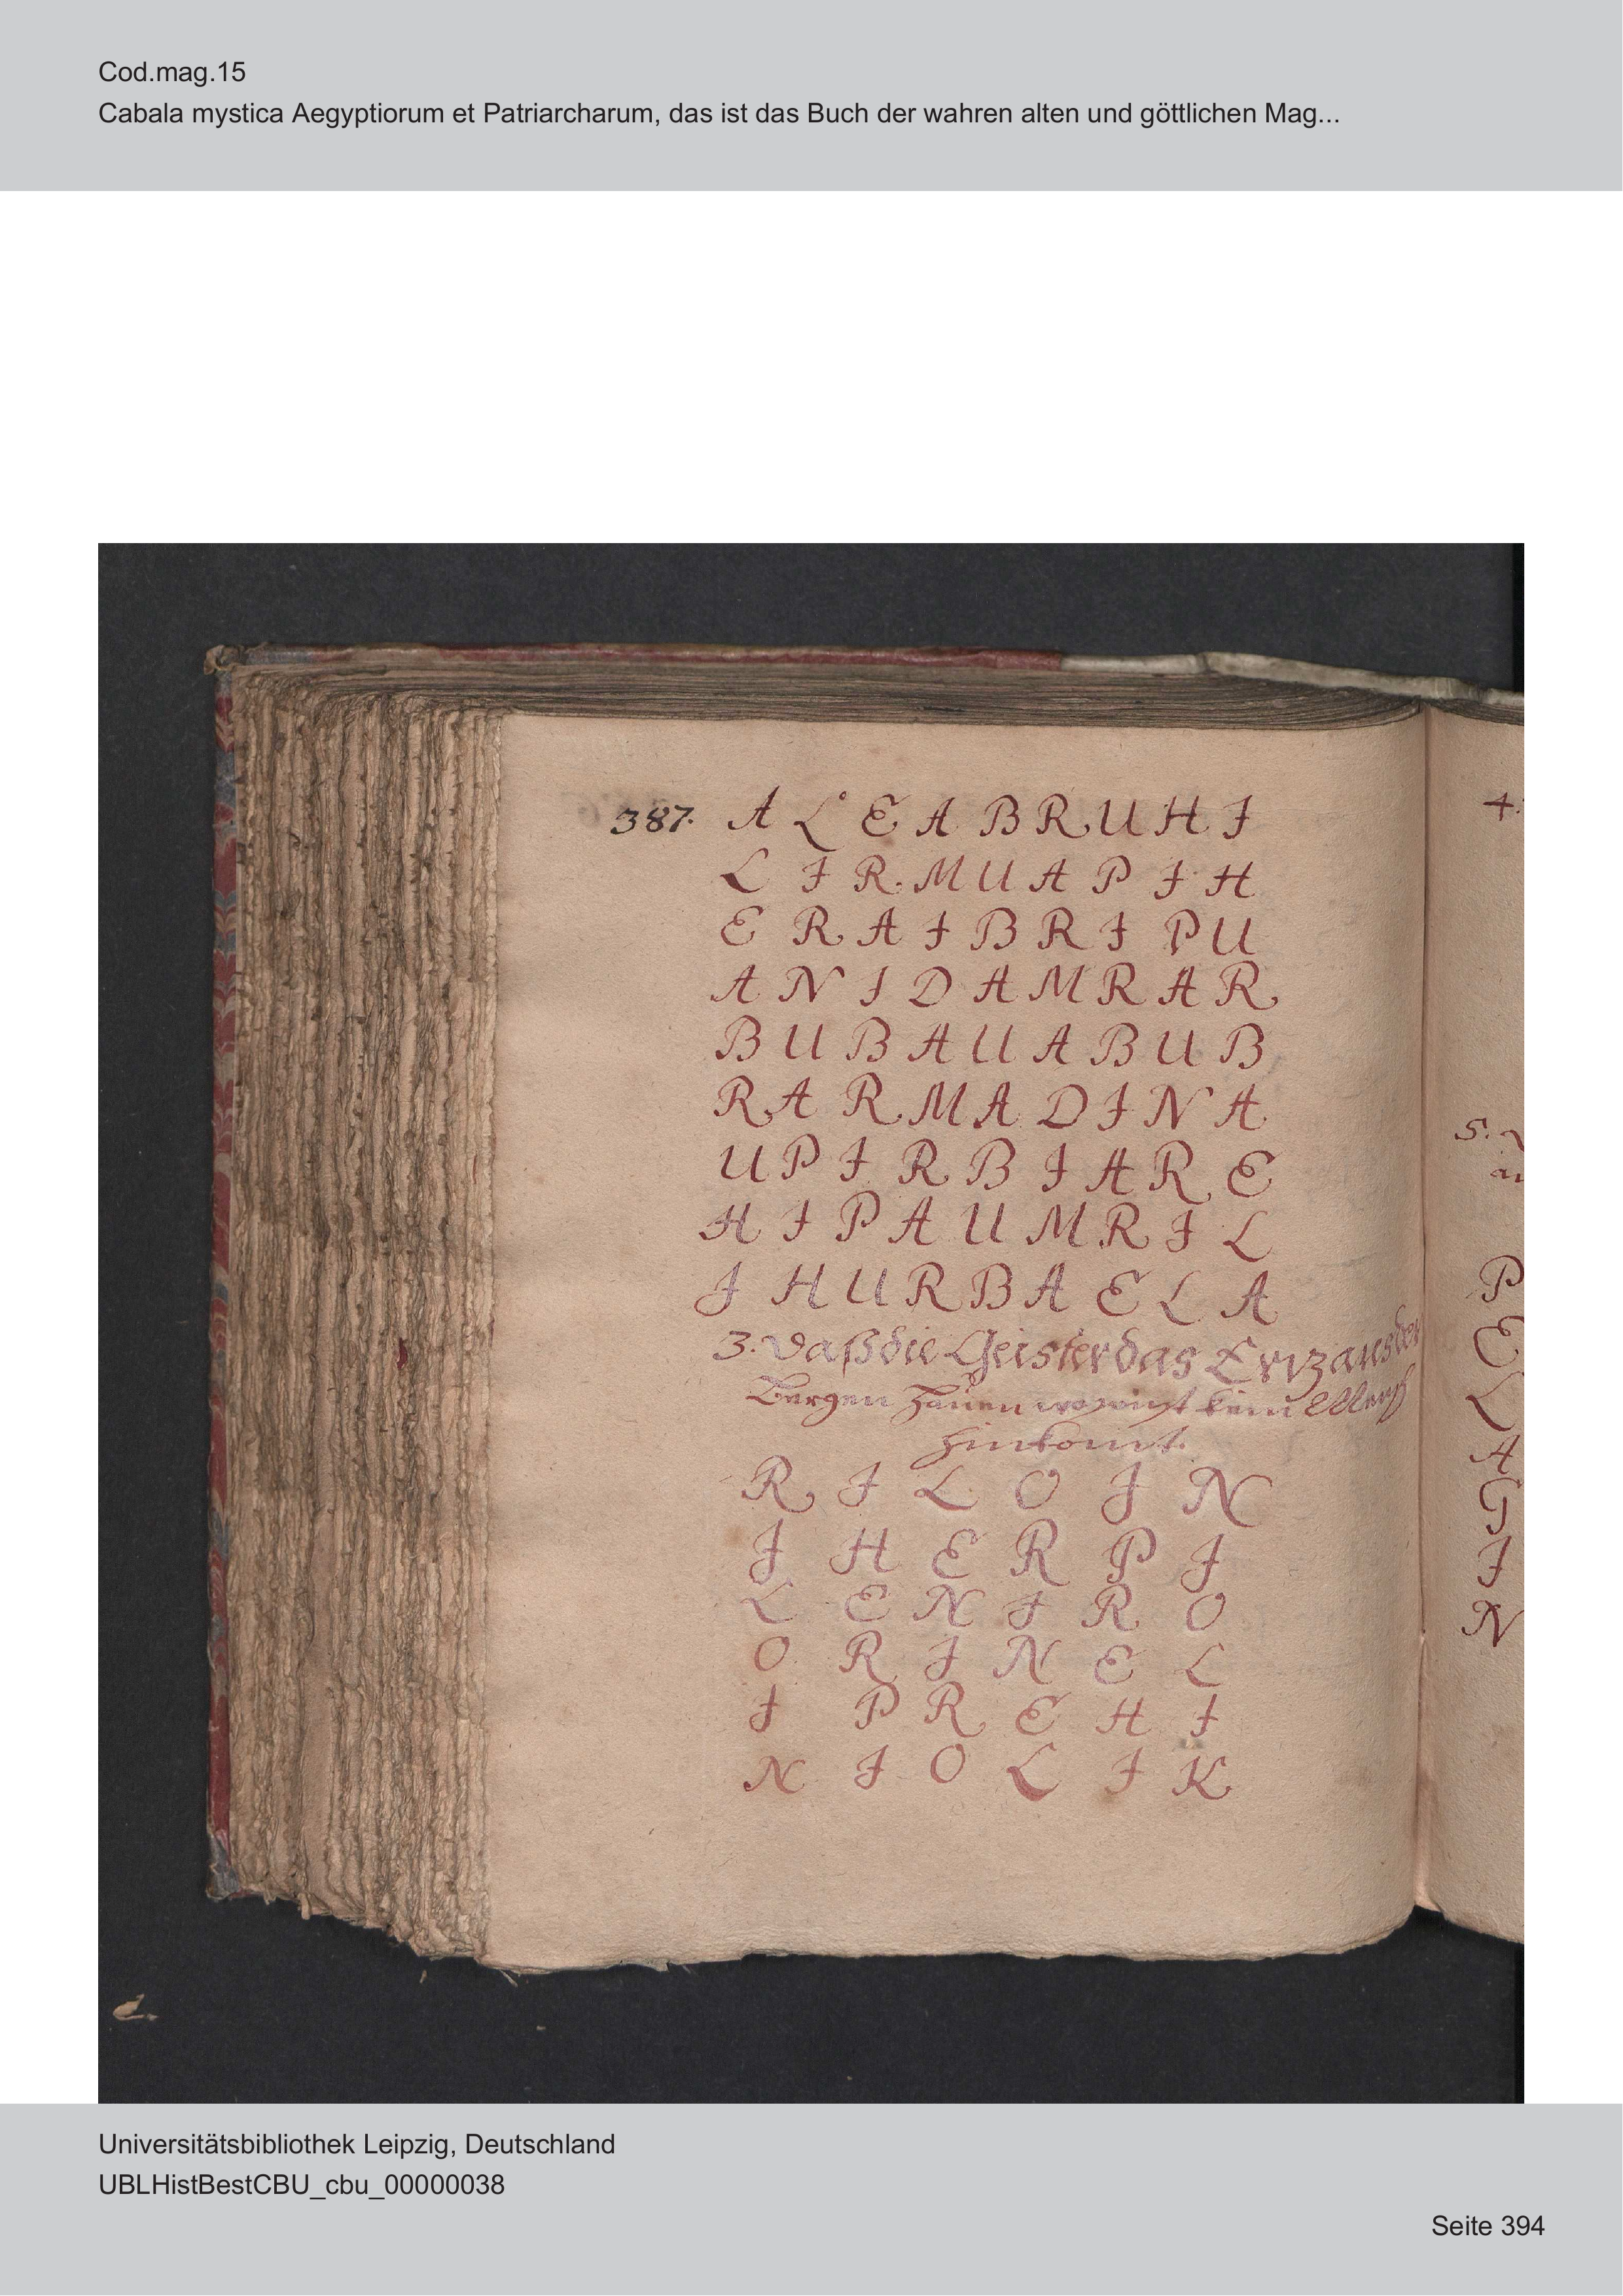 Cod.mag.15
Cabala mystica Aegyptiorum et Patriarcharum, das ist das Buch der wahren alten und göttlichen Mag...
387. A L E A B R U H I
L I R M U A P I H
E R A I B R I P U
A N I D A M R A R
B U B A U A B U B
R A R M A D I N A
U P I R B I A R E
H I P A U M R I L
I H U R B A E L A
3. Daß die Geister das Ertz aus den
Bergen hauen wo sonst kein Mensch
hinkomt.
R I L O I N
I H E R P I
L E N I R O
O R I N E L
I P R E H I
N I O L I K
4.
5.
P
E
L
A
G
I
N
Universitätsbibliothek Leipzig, Deutschland
UBLHistBestCBU_cbu_00000038
Seite 394